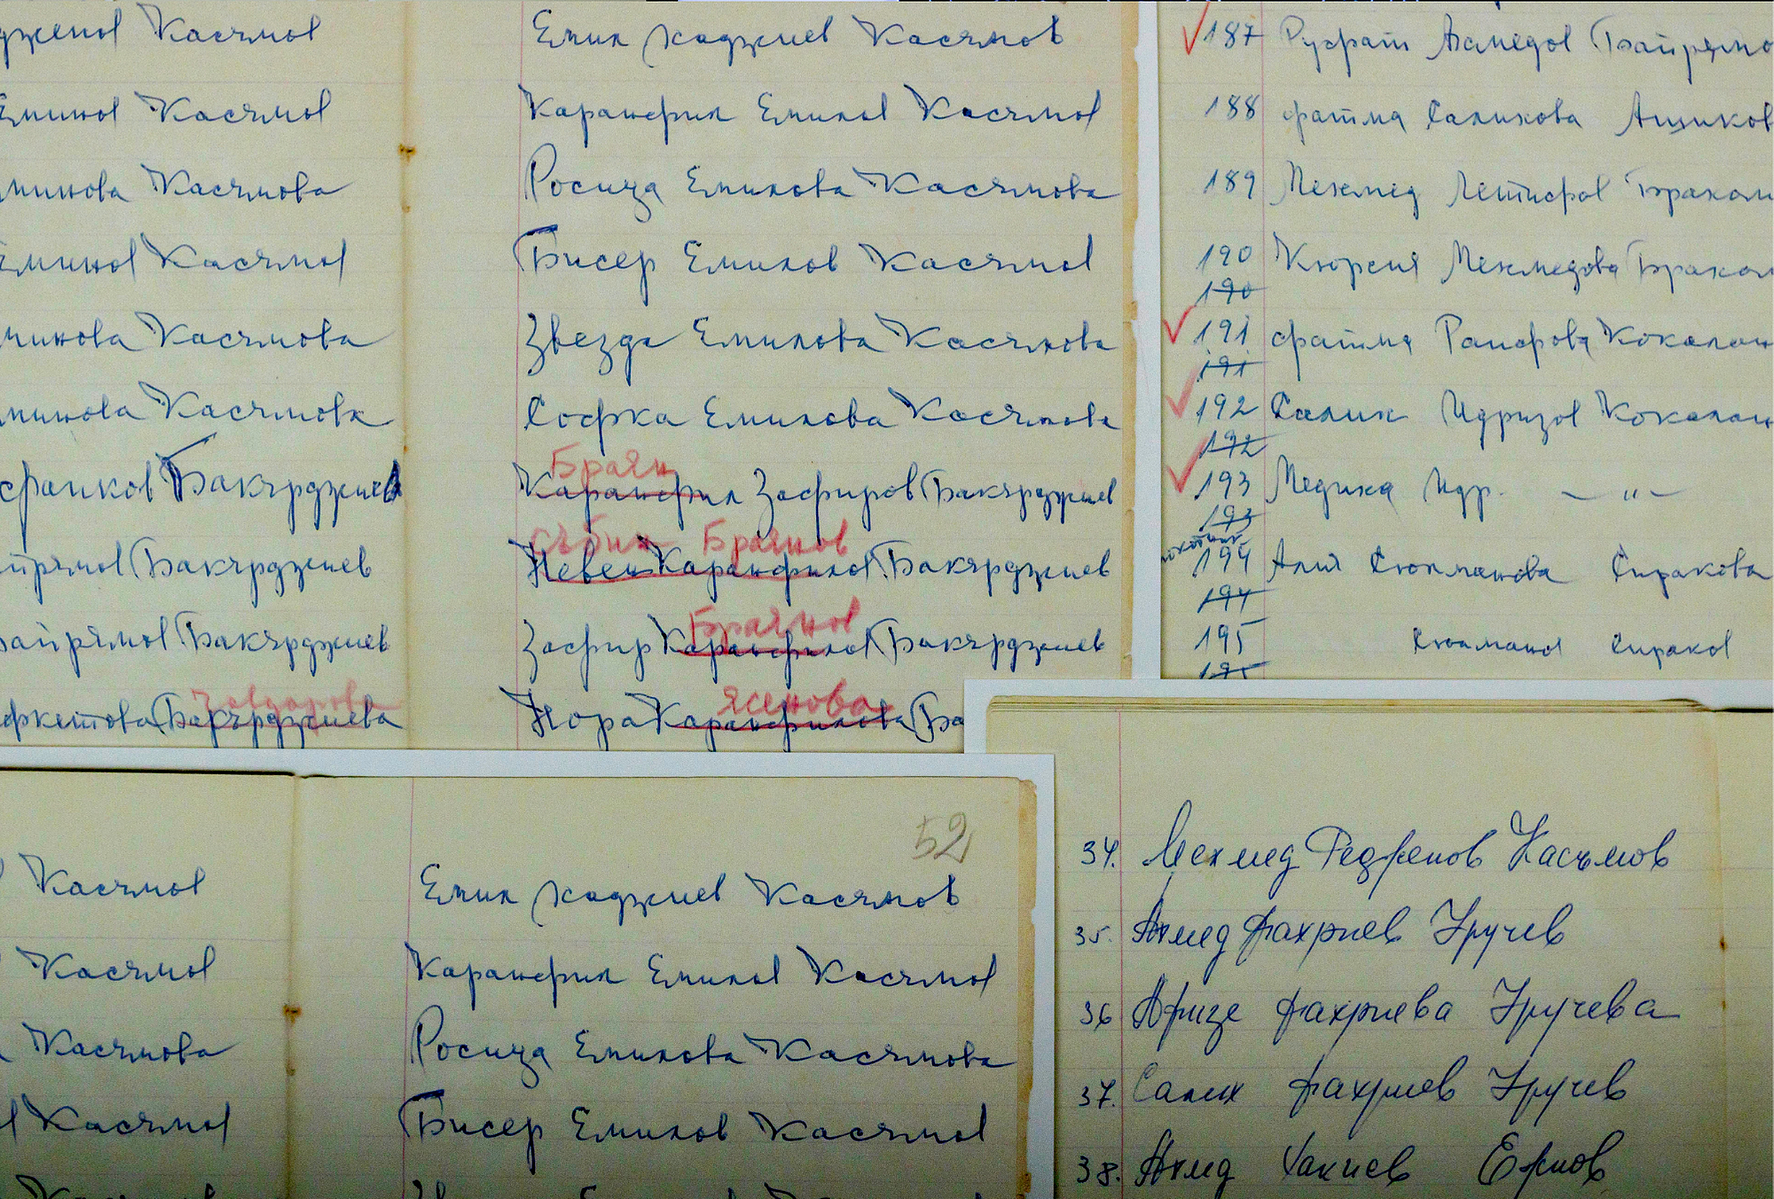 дженов Касъмов
Еминов Касъмов
минова Касъмова
Еминов Касъмов
минова Касъмова
минова Касъмова
Бакърджиев
йрямов Бакърджиев
байрямов Бакърджиев
Бакърджиева
Емил Хаджиев Касъмов
Карамфил Емилов Касъмов
Росица Емилова Касъмова
Бисер Емилов Касъмов
Звезда Емилова Касъмова
Софка Емилова Касъмова
Браян
Карамфил Зафиров Бакърджиев
Събин Браянов
Невен Карамфилов Бакърджиев
Браянов
Зафир Карамфилов Бакърджиев
Ясенова
Нора Карамфилова Ба
187 Руфат Ахмедов Байрямо
188 Фатма Салихова Ашиков
189 Мехмед Летифов
190 Кюрсия Мехмедова
190
191 Фатма Раифова Кокалан
191
192 Салих Идризов Кокалан
192
193 Медиха Идр. — " —
193
194 Алия Сюлманова Сиракова
194
195 Сюлманов Сираков
195
52
Касъмов
Касъмов
Касъмова
Касъмов
Емил Хаджиев Касъмов
Карамфил Емилов Касъмов
Росица Емилова Касъмова
Бисер Емилов Касъмов
34. Мехмед Редженов Касъмов
35. Ахмед Фахриев Уручев
36 Афизе Фахриева Уручева
37. Салих Фахриев Уручев
38. Ахмед Хакиев